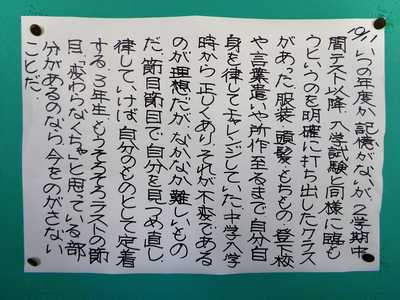 10/11 いつの年度か記憶がないが、2学期中
間テスト以降、入学試験と同様に臨も
うというのを明確に打ち出したクラス
があった。服装、頭髪、もちもの、登下校
や言葉遣いや所作に至るまで、自分自
身を律してチャレンジしていた。中学入学
時から正しくあり、それが不変である
のが理想だが、なかなか難しいもの
だ。節目節目で自分を見つめ直し、
律していけば、自分のものとして定着
する。3年生、もうそろそろラストの節
目。「変わらなくちゃ」と思っている部
分があるのなら、今をのがさない
ことだ。